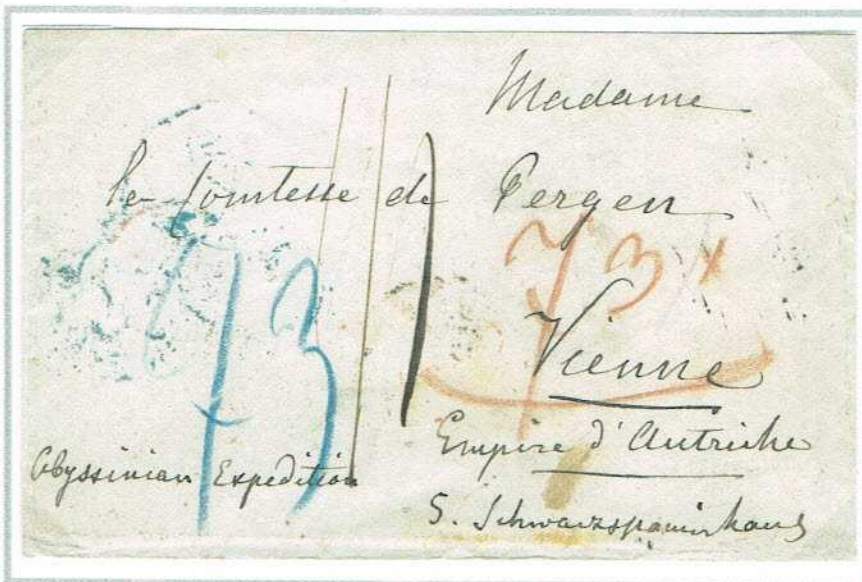 Madame
la Comtesse de Pergen
73 73 x
Vienne
Empire d'Autriche
Abyssinian Expedition
5. Schwarzspanierhaus